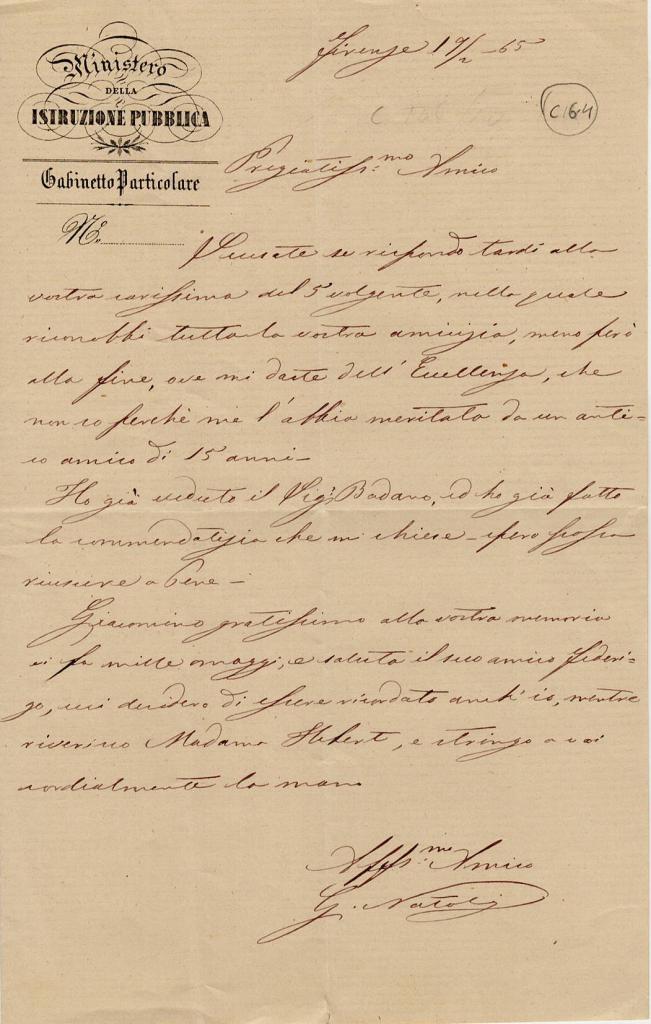 Ministero
DELLA
ISTRUZIONE PUBBLICA
Gabinetto Particolare
N.°
Firenze 19/2 -65
C 164
Pregiatiss:mo Amico
Scusate se rispondo tardi alla
vostra carissima del 5 volgente, nella quale
riconobbi tutta la vostra amicizia, meno però
alla fine, ove mi daste dell'Eccellenza, che
non so perchè me l'abbia meritata da un anti-
co amico di 15 anni -
Ho già veduto il Sigr. Badano, ed ho già fatto
la commendatizia che mi chiese - spero possa
riuscire a bene -
Giacomino gratissimo alla vostra memoria
vi fa mille omaggi, e saluta il suo amico Federi-
go, cui desidero di essere ricordato anch'io, mentre
riverisco Madama Hebert, e stringo a voi
cordialmente la mano
Affss:mo Amico
G. Natoli